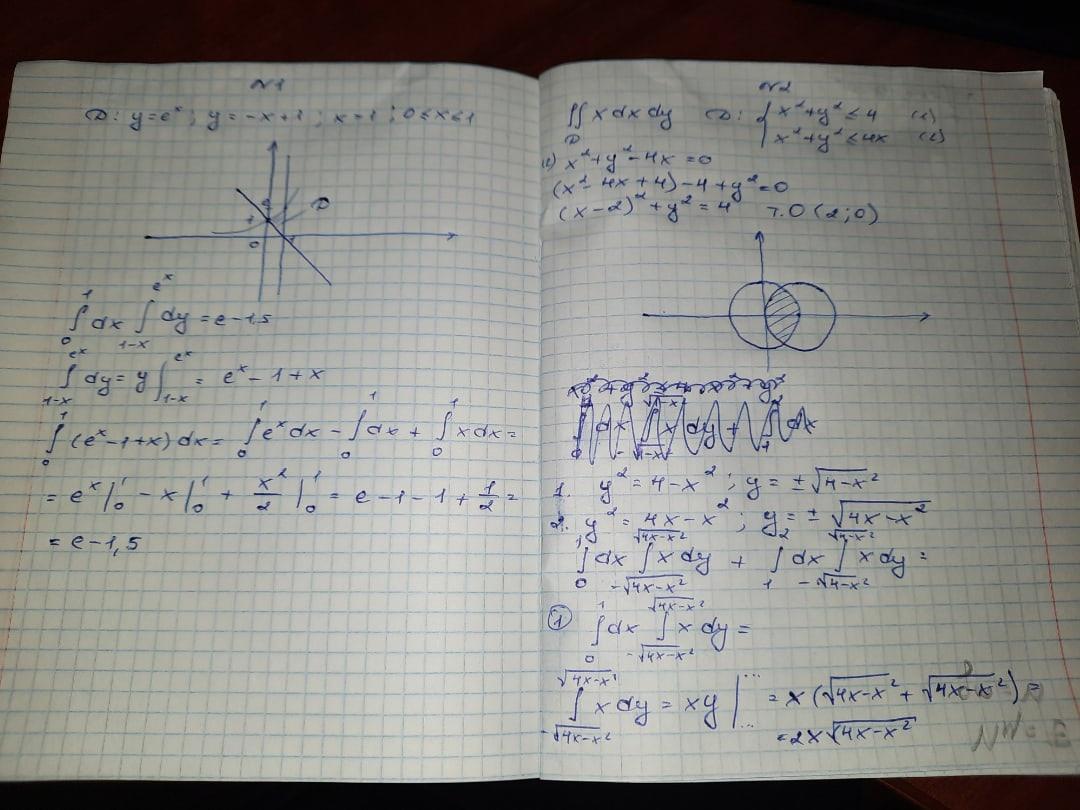 N1
D: y=eˣ; y=-x+1; x=1; 0≤x≤1
D
1
0
∫₀¹ dx ∫₁₋ₓ^(eˣ) dy = e-1,5
∫₁₋ₓ^(eˣ) dy = y |₁₋ₓ^(eˣ) = eˣ-1+x
∫₀¹ (eˣ-1+x) dx = ∫₀¹ eˣ dx - ∫₀¹ dx + ∫₀¹ x dx =
= eˣ|₀¹ - x|₀¹ + x²/2 |₀¹ = e-1-1+1/2 =
= e-1,5
N2
∬_D x dx dy D: { x²+y² ≤ 4 (1)
x²+y² ≤ 4x (2)
(2) x²+y²-4x=0
(x²-4x+4)-4+y²=0
(x-2)²+y²=4 т.O(2;0)
1. y²=4-x²; y=±√(4-x²)
2. y²=4x-x²; y=±√(4x-x²)
∫₀¹ dx ∫_(-√(4x-x²))^(√(4x-x²)) x dy + ∫₁² dx ∫_(-√(4-x²))^(√(4-x²)) x dy =
① ∫₀¹ dx ∫_(-√(4x-x²))^(√(4x-x²)) x dy =
∫_(-√(4x-x²))^(√(4x-x²)) x dy = xy |... ... = x(√(4x-x²)+√(4x-x²)) =
= 2x√(4x-x²)